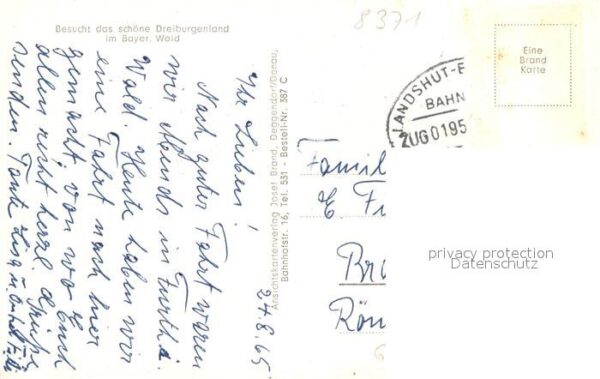 Besucht das schöne Dreiburgenland
im Bayer. Wald
8371
Eine
Brand
Karte
LANDSHUT-E
BAHN
ZUG 0195
24.8.65
Ihr Lieben!
Nach guter Fahrt waren
wir abends in Furth i.
Wald. Heute haben wir
eine Fahrt nach hier
gemacht, von wo Euch
allen recht herzl. Grüße
senden. Tante Lisa u. Onkel
Ansichtskartenverlag Josef Brand, Deggendorf/Donau,
Bahnhofstr. 16, Tel. 531 - Bestell-Nr. 387 C
Famil
E. Fr
Br
Röm
privacy protection
Datenschutz